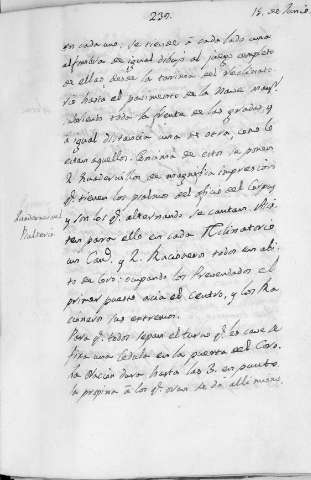 239.
15. de Junio.
en cada uno: se tiende â cada lado una
alfombra de igual dibujo al juego completo
de ellas desde la tarima del Reclinato
rio hasta el pavimento de la Nave mayr.
cubriendo toda la frente de las gradas, y
â igual distancia una de otra, como lo
estan aquellos. Encima de estos se ponen
2. Quadernillos de magnifica impresión
q.e tienen los psalmos del oficio del Corpus
y son los q.e alternando se cantan. Asis
Quadernos del
Psalterio
ten para ello en cada Reclinatorio
un Can.o y 2. Racioneros todos en abi
to de Coro: ocupando los Prevendados el
primer puesto acia el Centro, y los Ra
cioneros los extremos.
Para q.e todos sepan el turno q.e les cave se
fixa una Cedula en la puerta del Coro.
la Oración dura hasta las 3. en punto.
la propina â los q.e oran se da alli mismo.